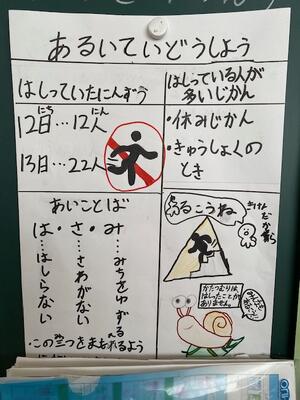 あるいていどうしよう
はしっていたにんずう
12日…12人
にち
にん
13日…22人
はしっている人が
多いじかん
・休みじかん
・きゅうしょくの
とき
あいことば
み…みちをゆずる
・さ…さわがない
・は…はしらない
・この三つをまもれるよう
あるこうね
きけん
だから
かたつむりは、
はしったことが
ありません。